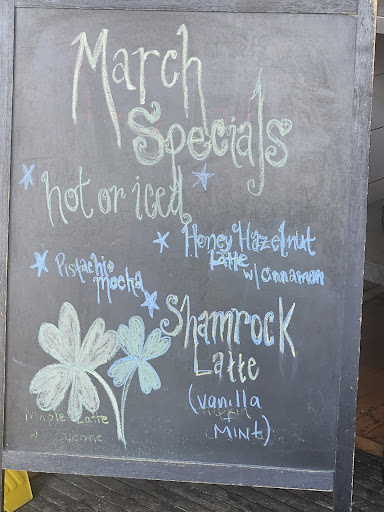 March
Specials
hot or iced
Honey Hazelnut
Latte
w/ Cinnamon
Pistachio
Mocha
Shamrock
Latte
(vanilla
+
MINT)
Maple Latte
w/